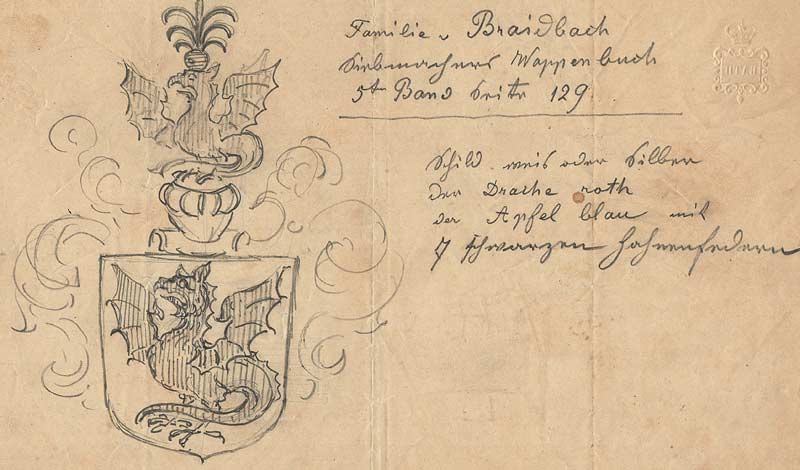 Familie v Braidbach
Siebmachers Wappenbuch
5ter Band Seite 129.
Schild weis oder Silber
der Drache roth
der Apfel blau mit
7 schwarzen Hahnenfedern